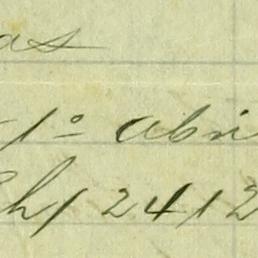 as
1º abri
h/2412